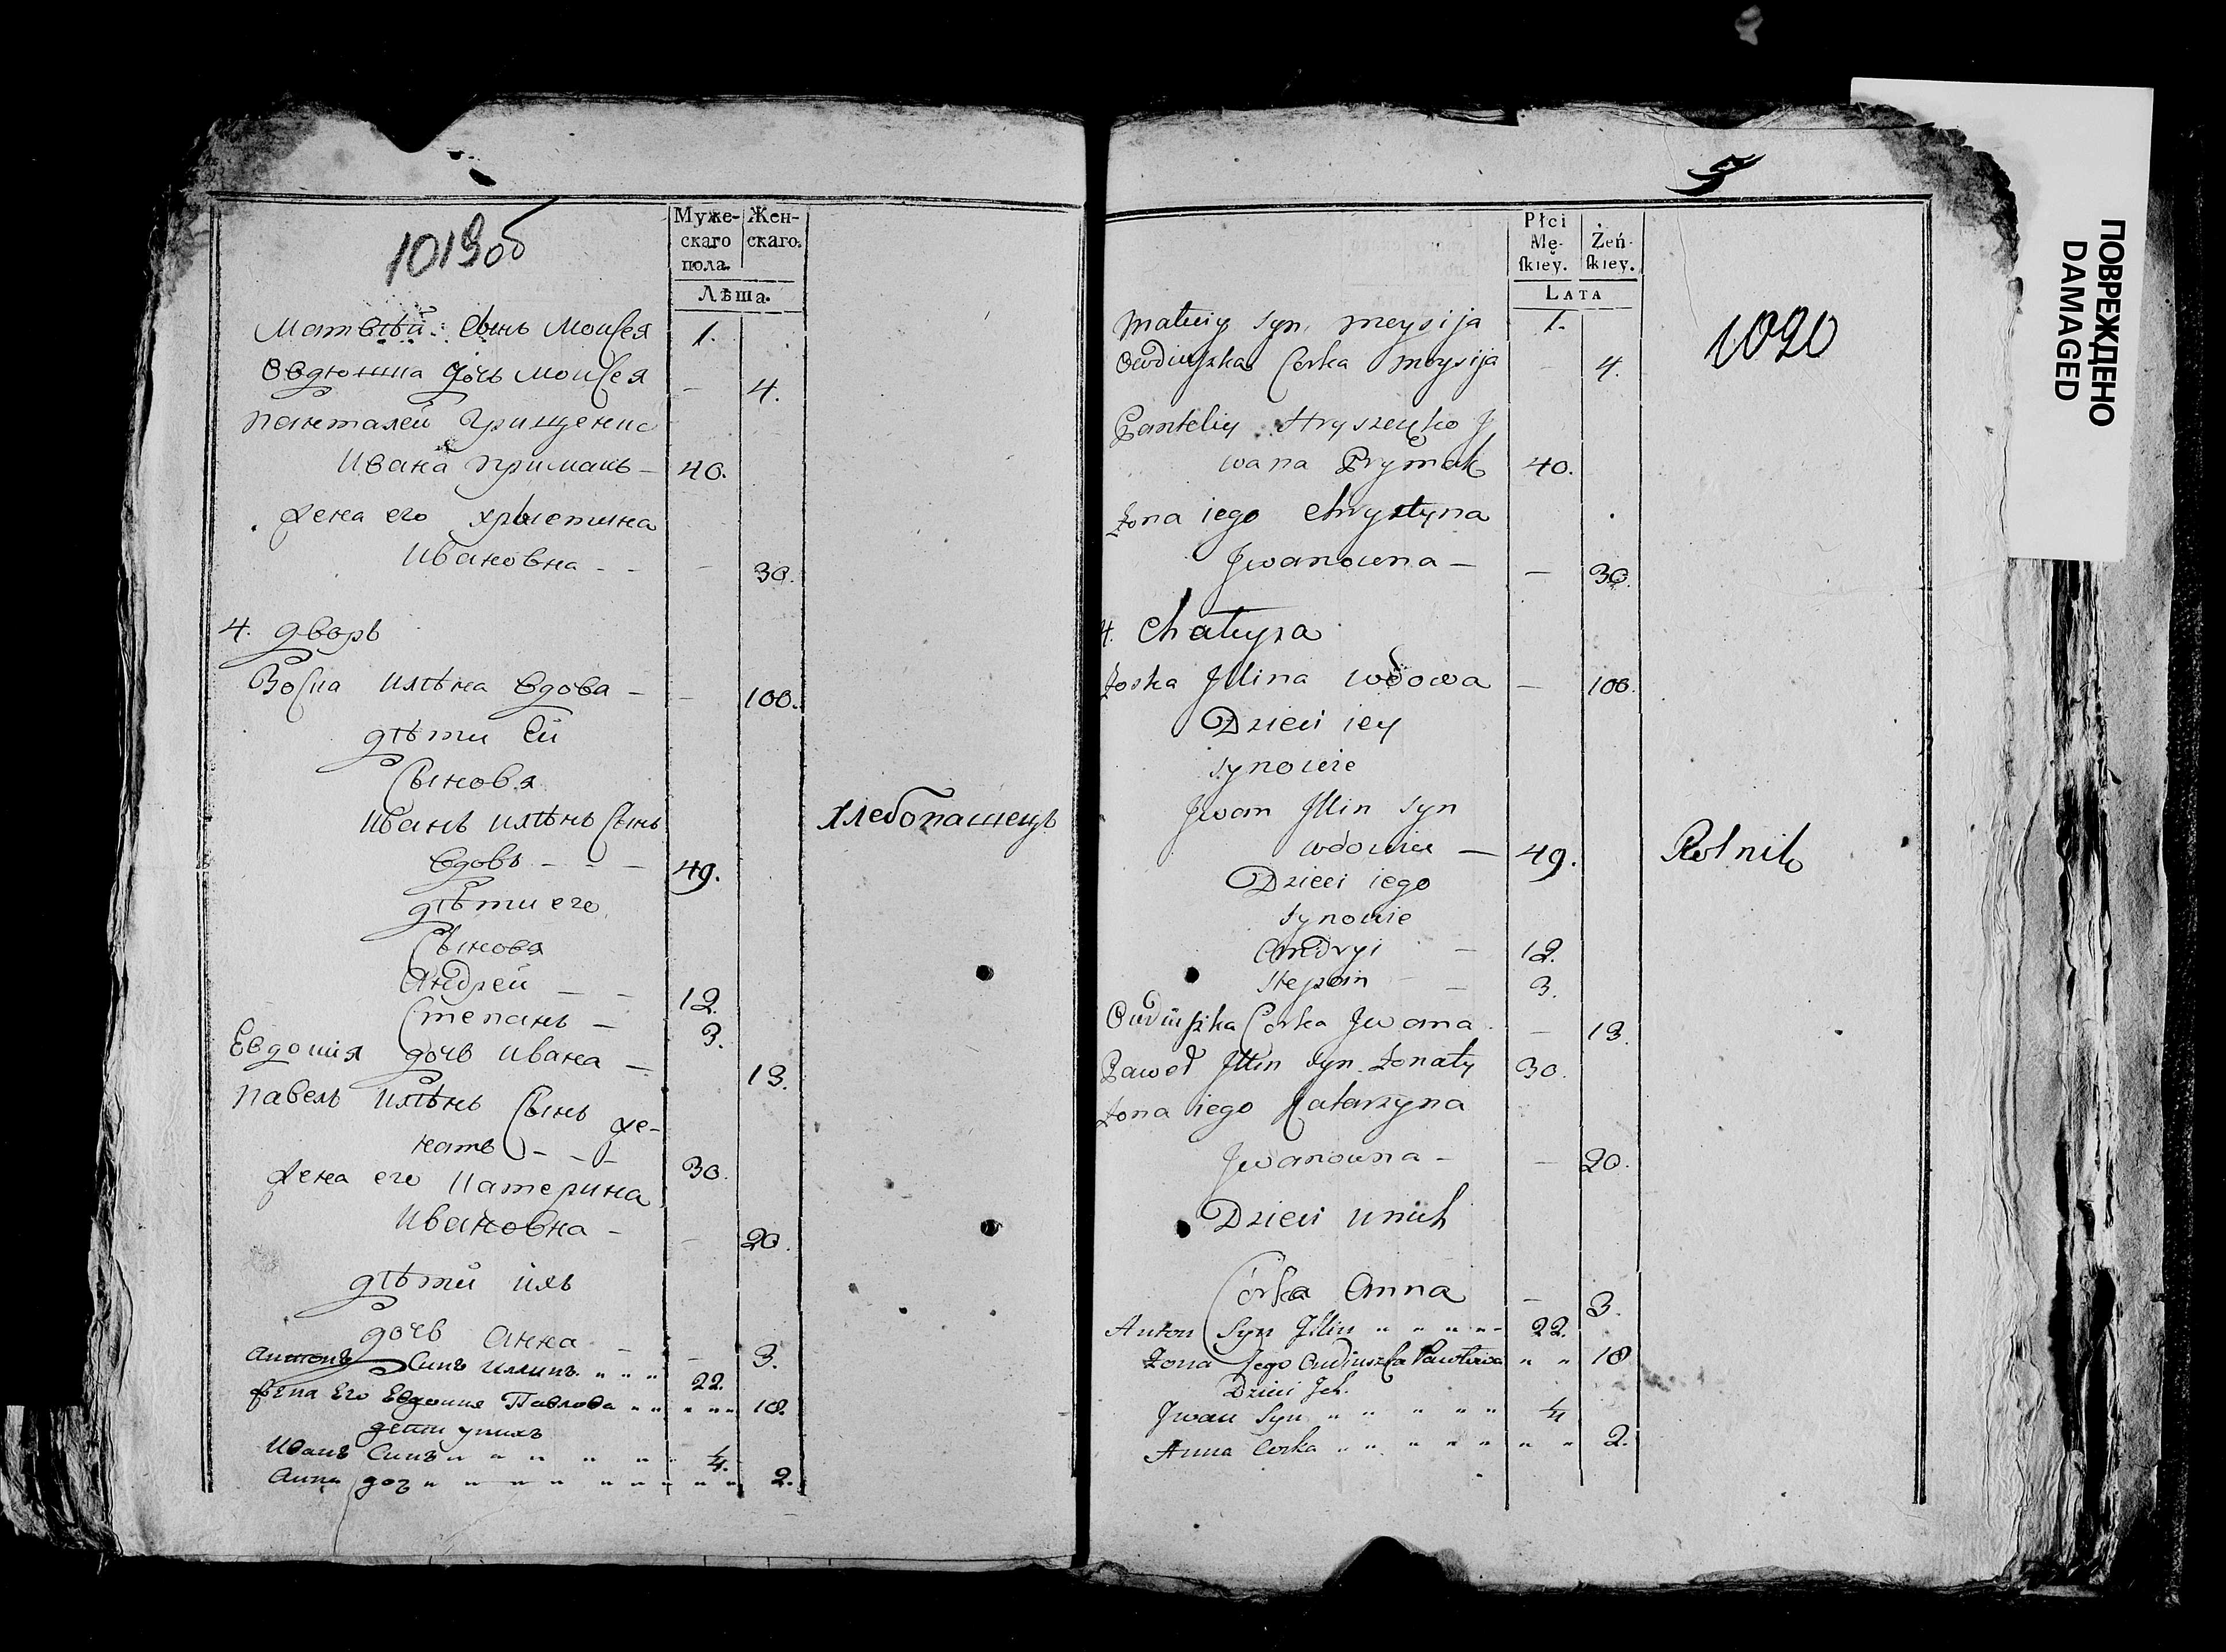 1019об
Муже-
скаго
пола.
Жен-
скаго.
Лѣта.
Матвѣй Сынъ Моисея 1.
Овдюшка дочь Моисея – 4.
Панталей Грищенко
Ивана примакъ – 40.
Жена его Христина
Ивановна – – – 30.
4. дворъ
Зоська Илѣна вдова – – 100.
дѣти ей
Сыновя
Иванъ Илѣнъ Сынъ хлебопашецъ
вдовъ – – – 49.
дѣти его
Сыновя
Андрей – – 12.
Степанъ – 3.
Евдошия дочь Ивана – 13.
Павелъ Илѣнъ Сынъ же-
натъ – – – 30.
Жена его Катерина
Ивановна – – 20.
дѣти ихъ
дочь Анна – – 3.
Антонъ Синъ Илинъ " " " 22.
Жена Его Евдошия Павлова " " " " " 18.
дети у нихъ
Иванъ Синъ " " " " " " 1/4.
Анна доч " " " " " " " " " 2.
5
1020
Płci
Mę-
skiey.
Żeń-
skiey.
LATA
Matwiy syn Moysija 1.
Owdiuszka Corka Moysija – 4.
Panteliy Hryszeńko J
wana Prymak 40.
Żona iego Chrystyna
Jwanowna – – 30.
4. Chałupa
Zoska Jllina wdowa – 100.
Dzieci iey
synowie
Jwan Jllin syn
wdowiec – 49. Rolnik
Dzieci iego
synowie
Andryi – 12.
Stepan – – 3.
Owdiuszka Corka Jwana – 13.
Paweł Jllin syn Żonaty 30.
Żona iego Katarzyna
Jwanowna – – 20.
Dzieci u nich
Córka Anna – 3.
Anton Syn Jllin " " " " " 22.
Żona Jego Owdiuszka Pawłowa " " 18
Dzieci Jch.
Jwan Syn " " " " " 1/4
Anna Corka " " " " " " " 2.
ПОВРЕЖДЕНО
DAMAGED